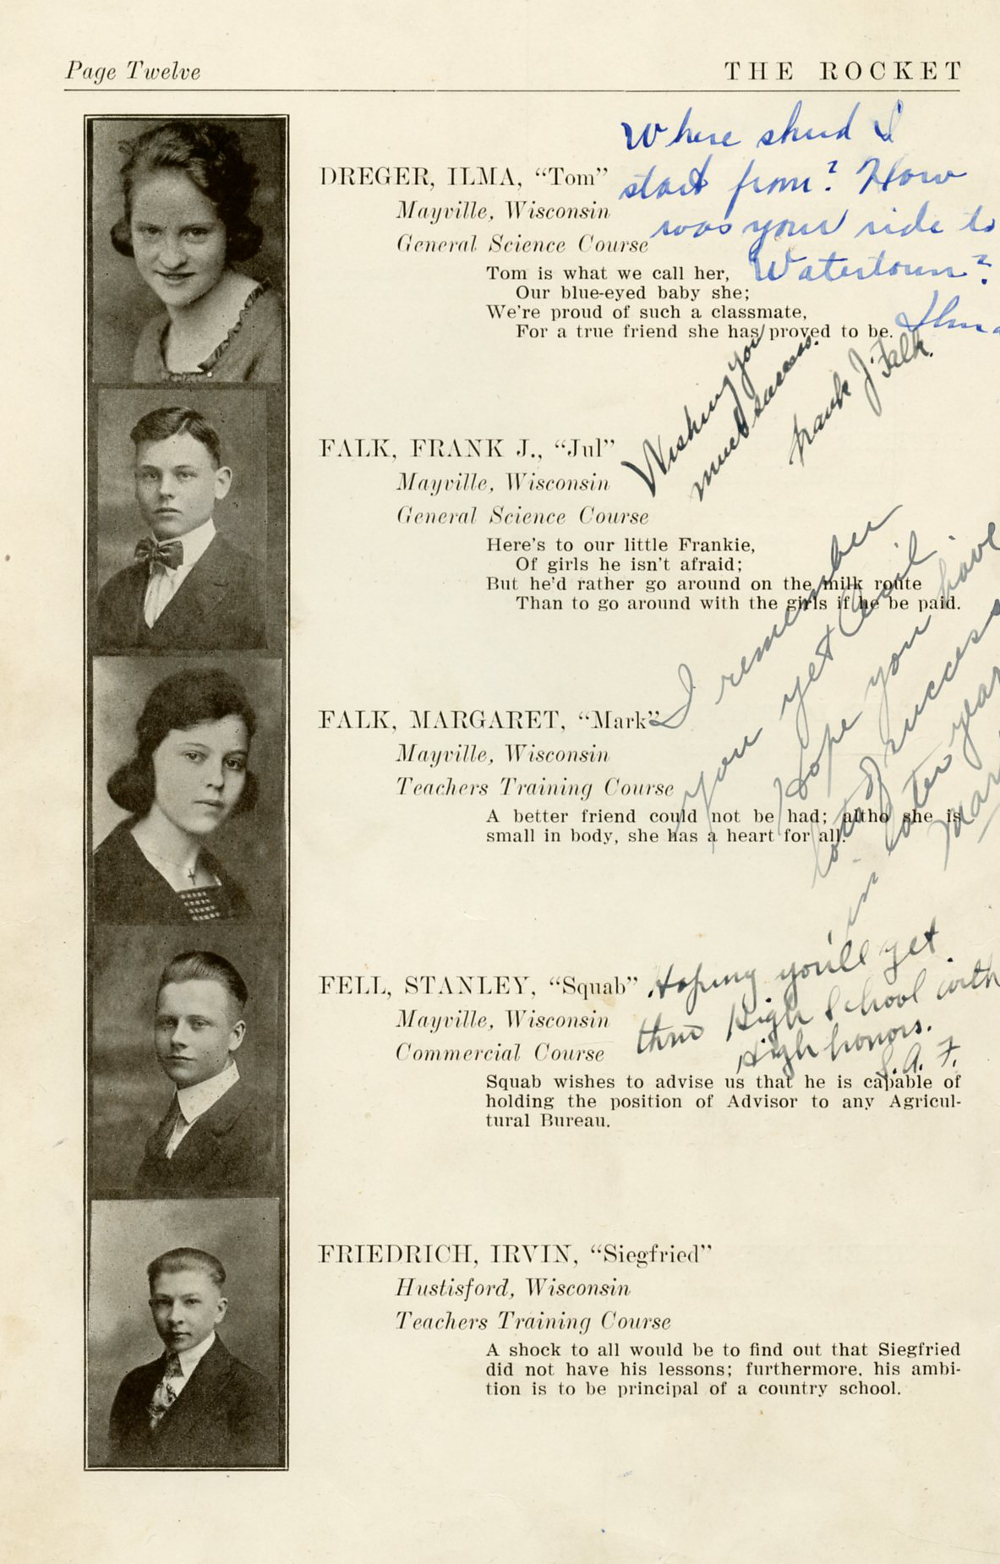 Page Twelve
THE ROCKET
Where shud I
start from? How
was your ride to
Watertown?
Ilma
DREGER, ILMA, “Tom”
Mayville, Wisconsin
General Science Course
Tom is what we call her,
Our blue-eyed baby she;
We're proud of such a classmate,
For a true friend she has proved to be.
Wishing you
much success.
Frank J. Falk.
FALK, FRANK J., “Jul”
Mayville, Wisconsin
General Science Course
Here's to our little Frankie,
Of girls he isn't afraid;
But he'd rather go around on the milk route
Than to go around with the girls if he be paid.
I remember
you yet
Hope you have
lots of success
in later years
FALK, MARGARET, “Mark”
Mayville, Wisconsin
Teachers Training Course
A better friend could not be had; altho she is
small in body, she has a heart for all.
Hoping you'll get
thru High School with
High honors.
S. A. F.
FELL, STANLEY, “Squab”
Mayville, Wisconsin
Commercial Course
Squab wishes to advise us that he is capable of
holding the position of Advisor to any Agricul-
tural Bureau.
FRIEDRICH, IRVIN, “Siegfried”
Hustisford, Wisconsin
Teachers Training Course
A shock to all would be to find out that Siegfried
did not have his lessons; furthermore, his ambi-
tion is to be principal of a country school.